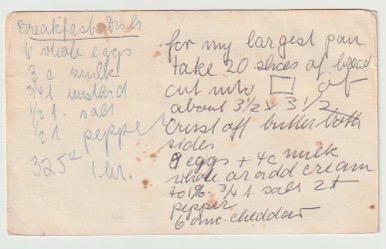 Breakfast Dish
6 whole eggs
3 c milk
3/4 t mustard
1/2 t. salt
1/2 t pepper
325° 1 hr.
for my largest pan
take 20 slices of bread
cut into □ of
about 3 1/2 x 3 1/2
Crust off butter both
sides
9 eggs + 4c milk
whole or add cream
3/4 t. salt 2t
pepper
6 ounc. cheddar